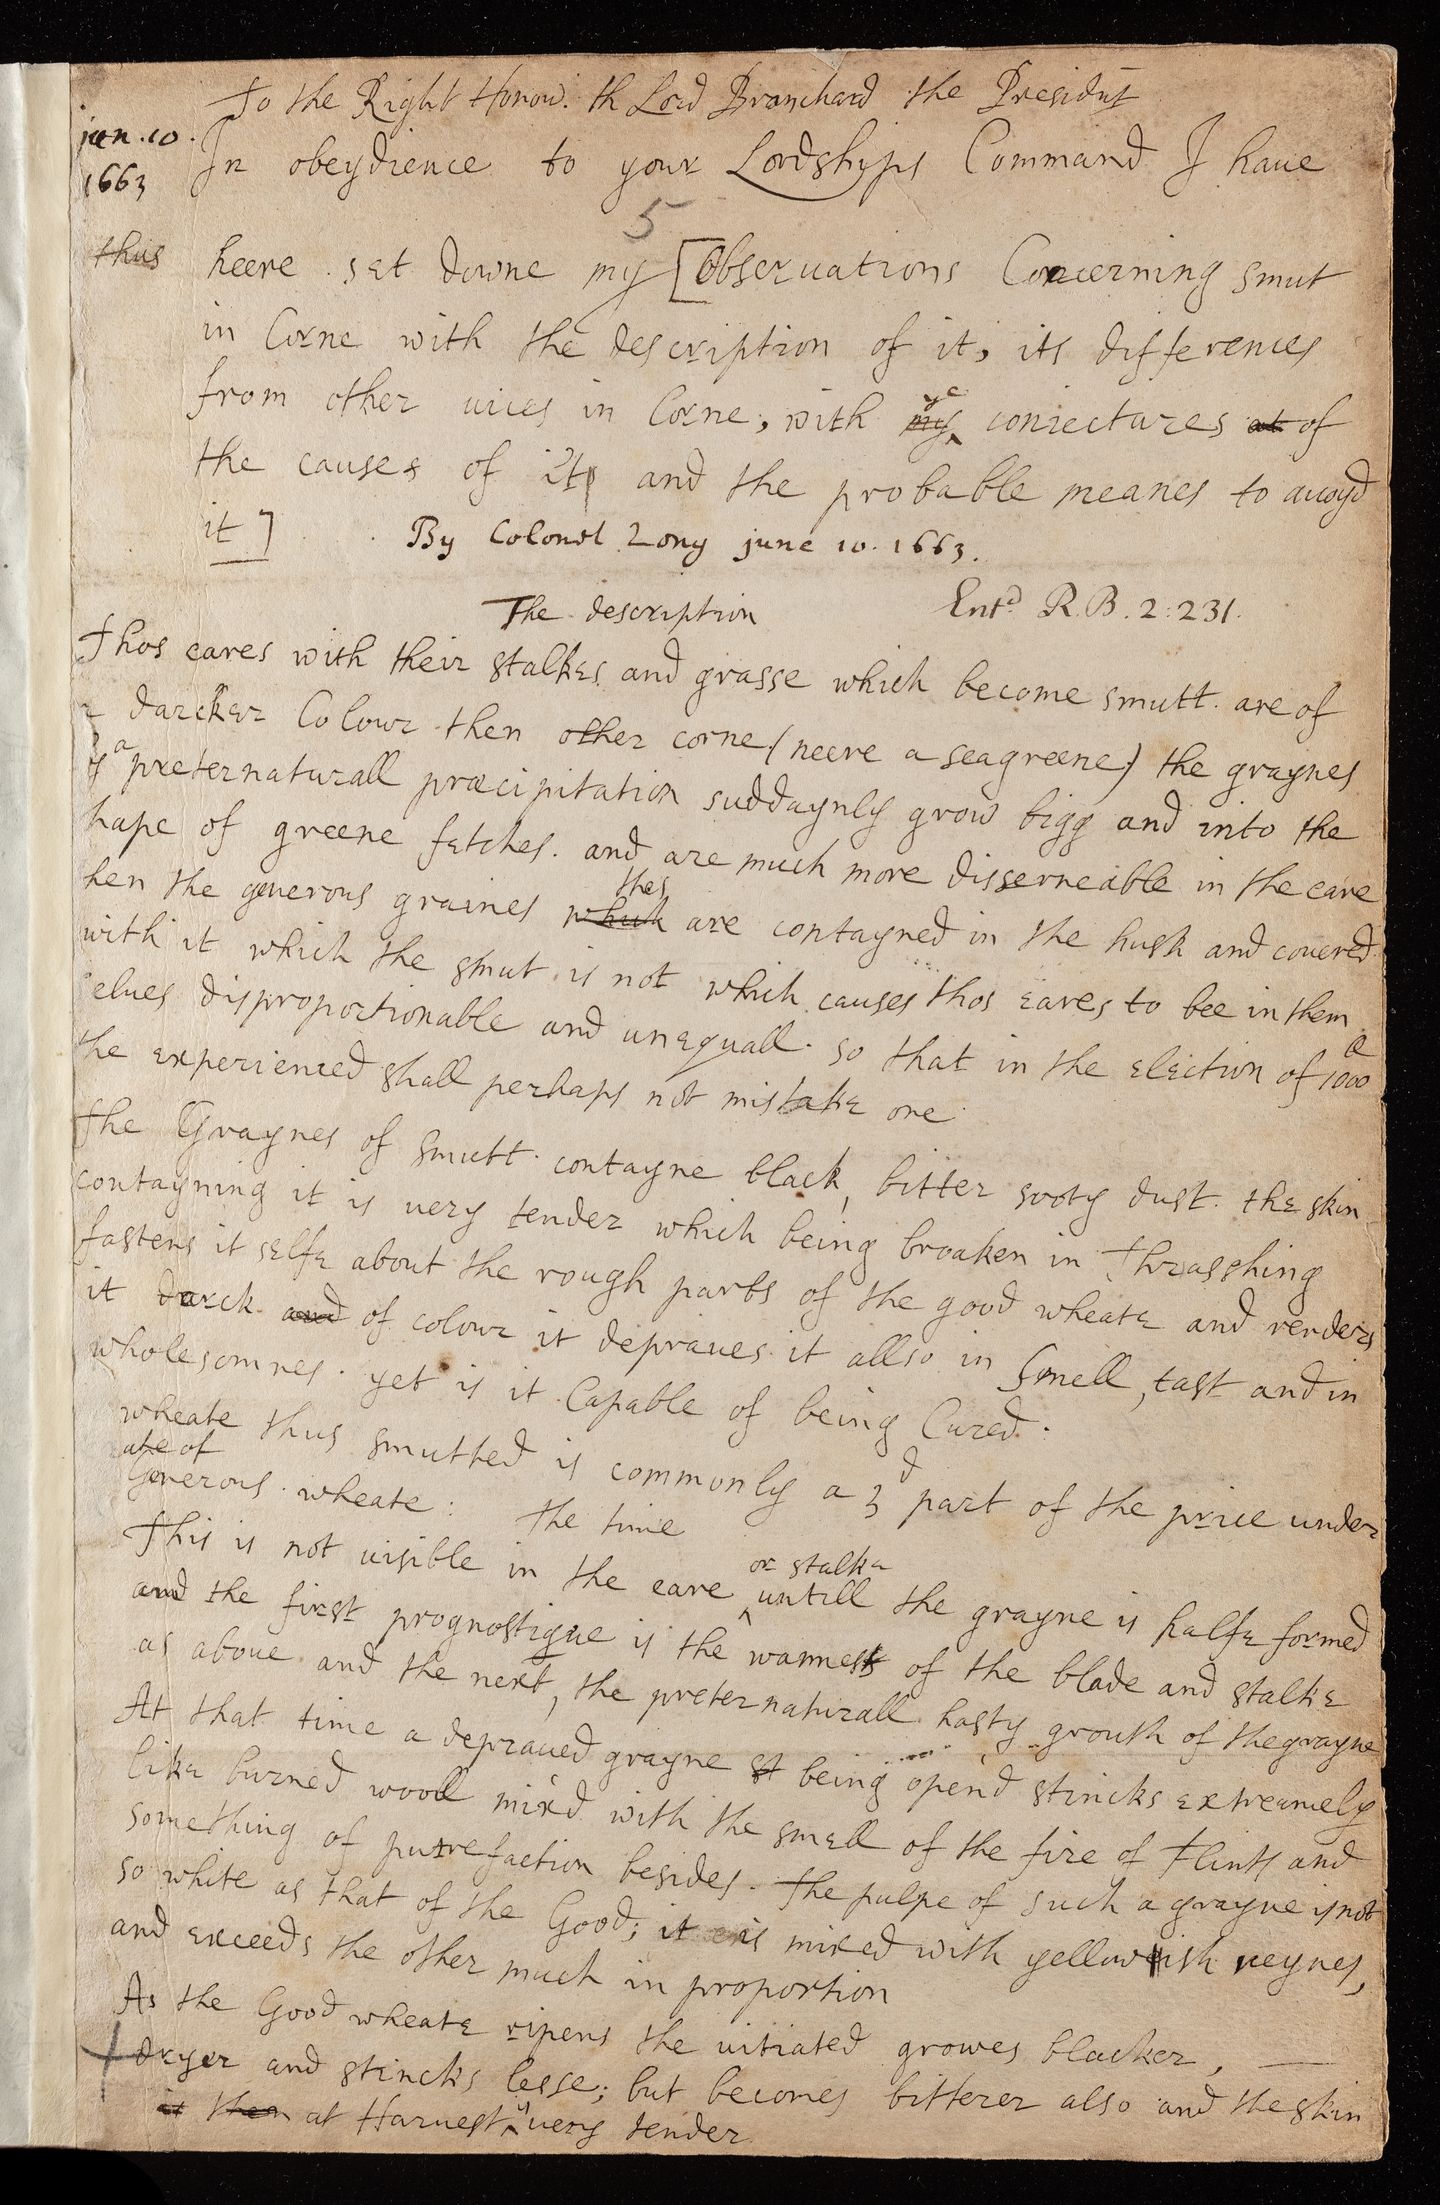 To the Right Honou.r th Lord Brounchard the Presidt
jun. 10.
1663
In obeydience to your Lordshyps Command I haue
5
thus heere set downe my [Observations Concerning smut
in Corne with the description of it, its differences
from other uices in Corne, with my ye coniectures at of
the causes of it and the probable meanes to auoyd
it]
By Colonel Long june 10. 1663.
The description
Entd R.B. 2: 231.
Thos eares with their stalkes and grasse which become smutt are of
a darcker Colour then other corne (neere a seagreene) the graynes
by a preternaturall præcipitation suddaynly grow bigg and into the
hape of greene fetches. and are much more disserneable in the eare
hen the generous graines which thes are contayned in the husk and couered
with it which the smut is not which causes thos eares to bee in them
selues disproportionable and unequall. so that in the election of a 1000
the experienced shall perhaps not mistake one
The Graynes of smutt contayne black, bitter sooty dust. the skin
contayning it is uery tender which being broaken in Thrasshing
fastens it selfe about the rough parts of the good wheate and renders
it darck and of colour it depraues it allso in smell, tast and in
wholesomnes. yet is it Capable of being Cured.
wheate thus smutted is commonly a 3d part of the price under
ate of
Generous wheate:
The time
This is not uisible in the eare or stalke untill the grayne is halfe formed
and the first prognostique is the wannes of the blade and stalke
as aboue and the next, the preternaturall hasty grouth of the grayne
At that time a depraued grayne st being open'd stincks extreamely
like burned wooll mix'd with the smell of the fire of Flints and
something of putrefaction besides. The pulpe of such a grayne is not
so white as that of the Good; it is mixed with yellowish ueynes,
and exceeds the other much in proportion
As the Good wheate ripens the uitiated growes blacker,
dryer and stincks lesse; but becomes bitterer also and the skin
is then at Haruest is uery tender